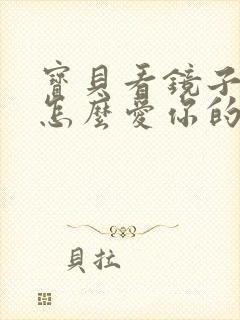 寶貝看鏡子
怎麼愛你的
貝拉